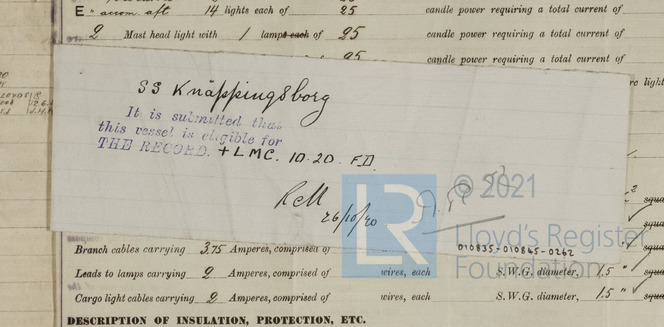 E " accom. aft 14 lights each of 25 candle power requiring a total current of
2 Mast head light with 1 lamps each of 25 candle power requiring a total current of
25 candle power requiring a total current of
rc light
SS Knäppingsborg
It is submitted that
this vessel is eligible for
THE RECORD. + LMC. 10.20. F.D.
26/10/20
© 2021
LR
Lloyd's Register
Foundation
010835-010845-0262
Branch cables carrying 3.75 Amperes, comprised of
Leads to lamps carrying 2 Amperes, comprised of wires, each S.W.G. diameter, 1.5 "
Cargo light cables carrying 2 Amperes, comprised of wires, each S.W.G. diameter, 1.5 "
DESCRIPTION OF INSULATION, PROTECTION, ETC.